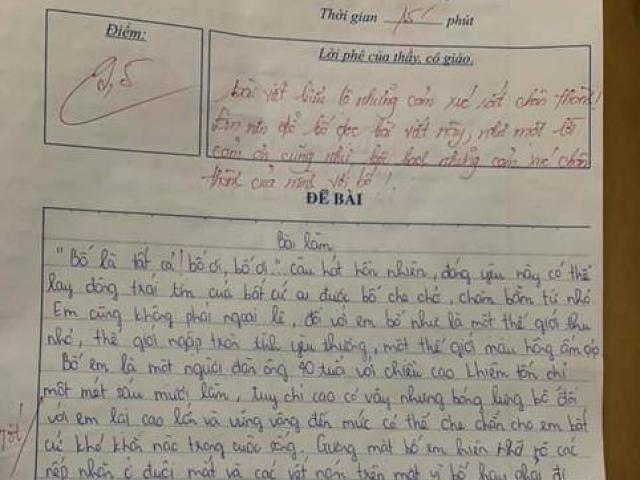 Thời gian 15' phút
Điểm:
9,5
Lời phê của thầy, cô giáo.
Bài viết biểu lộ những cảm xúc rất chân thành!
Em nên để bố đọc bài viết này, như một lời
cảm ơn cũng như bộc bạch những cảm xúc chân
thành của mình với bố!
ĐỀ BÀI
Bài làm
"Bố là tất cả! bố ơi, bố ơi." câu hát hồn nhiên, đáng yêu này có thể
lay động trái tim của bất cứ ai được bố che chở, chăm bẵm từ nhỏ
Em cũng không phải ngoại lệ, đối với em bố như là một thế giới thu
nhỏ, thế giới ngập tràn tình yêu thương, một thế giới màu hồng ấm áp.
Bố em là một người đàn ông 40 tuổi với chiều cao khiêm tốn chỉ
một mét sáu mươi lăm, tuy chỉ cao có vậy nhưng bóng lưng bố đối
với em lại cao lớn và vững vàng đến mức có thể che chắn cho em bất
cứ khó khăn nào trong cuộc sống. Gương mặt bố em hiện rõ các
nếp nhăn ở đuôi mắt và các vết nám trên mặt vì bố hay phải đi